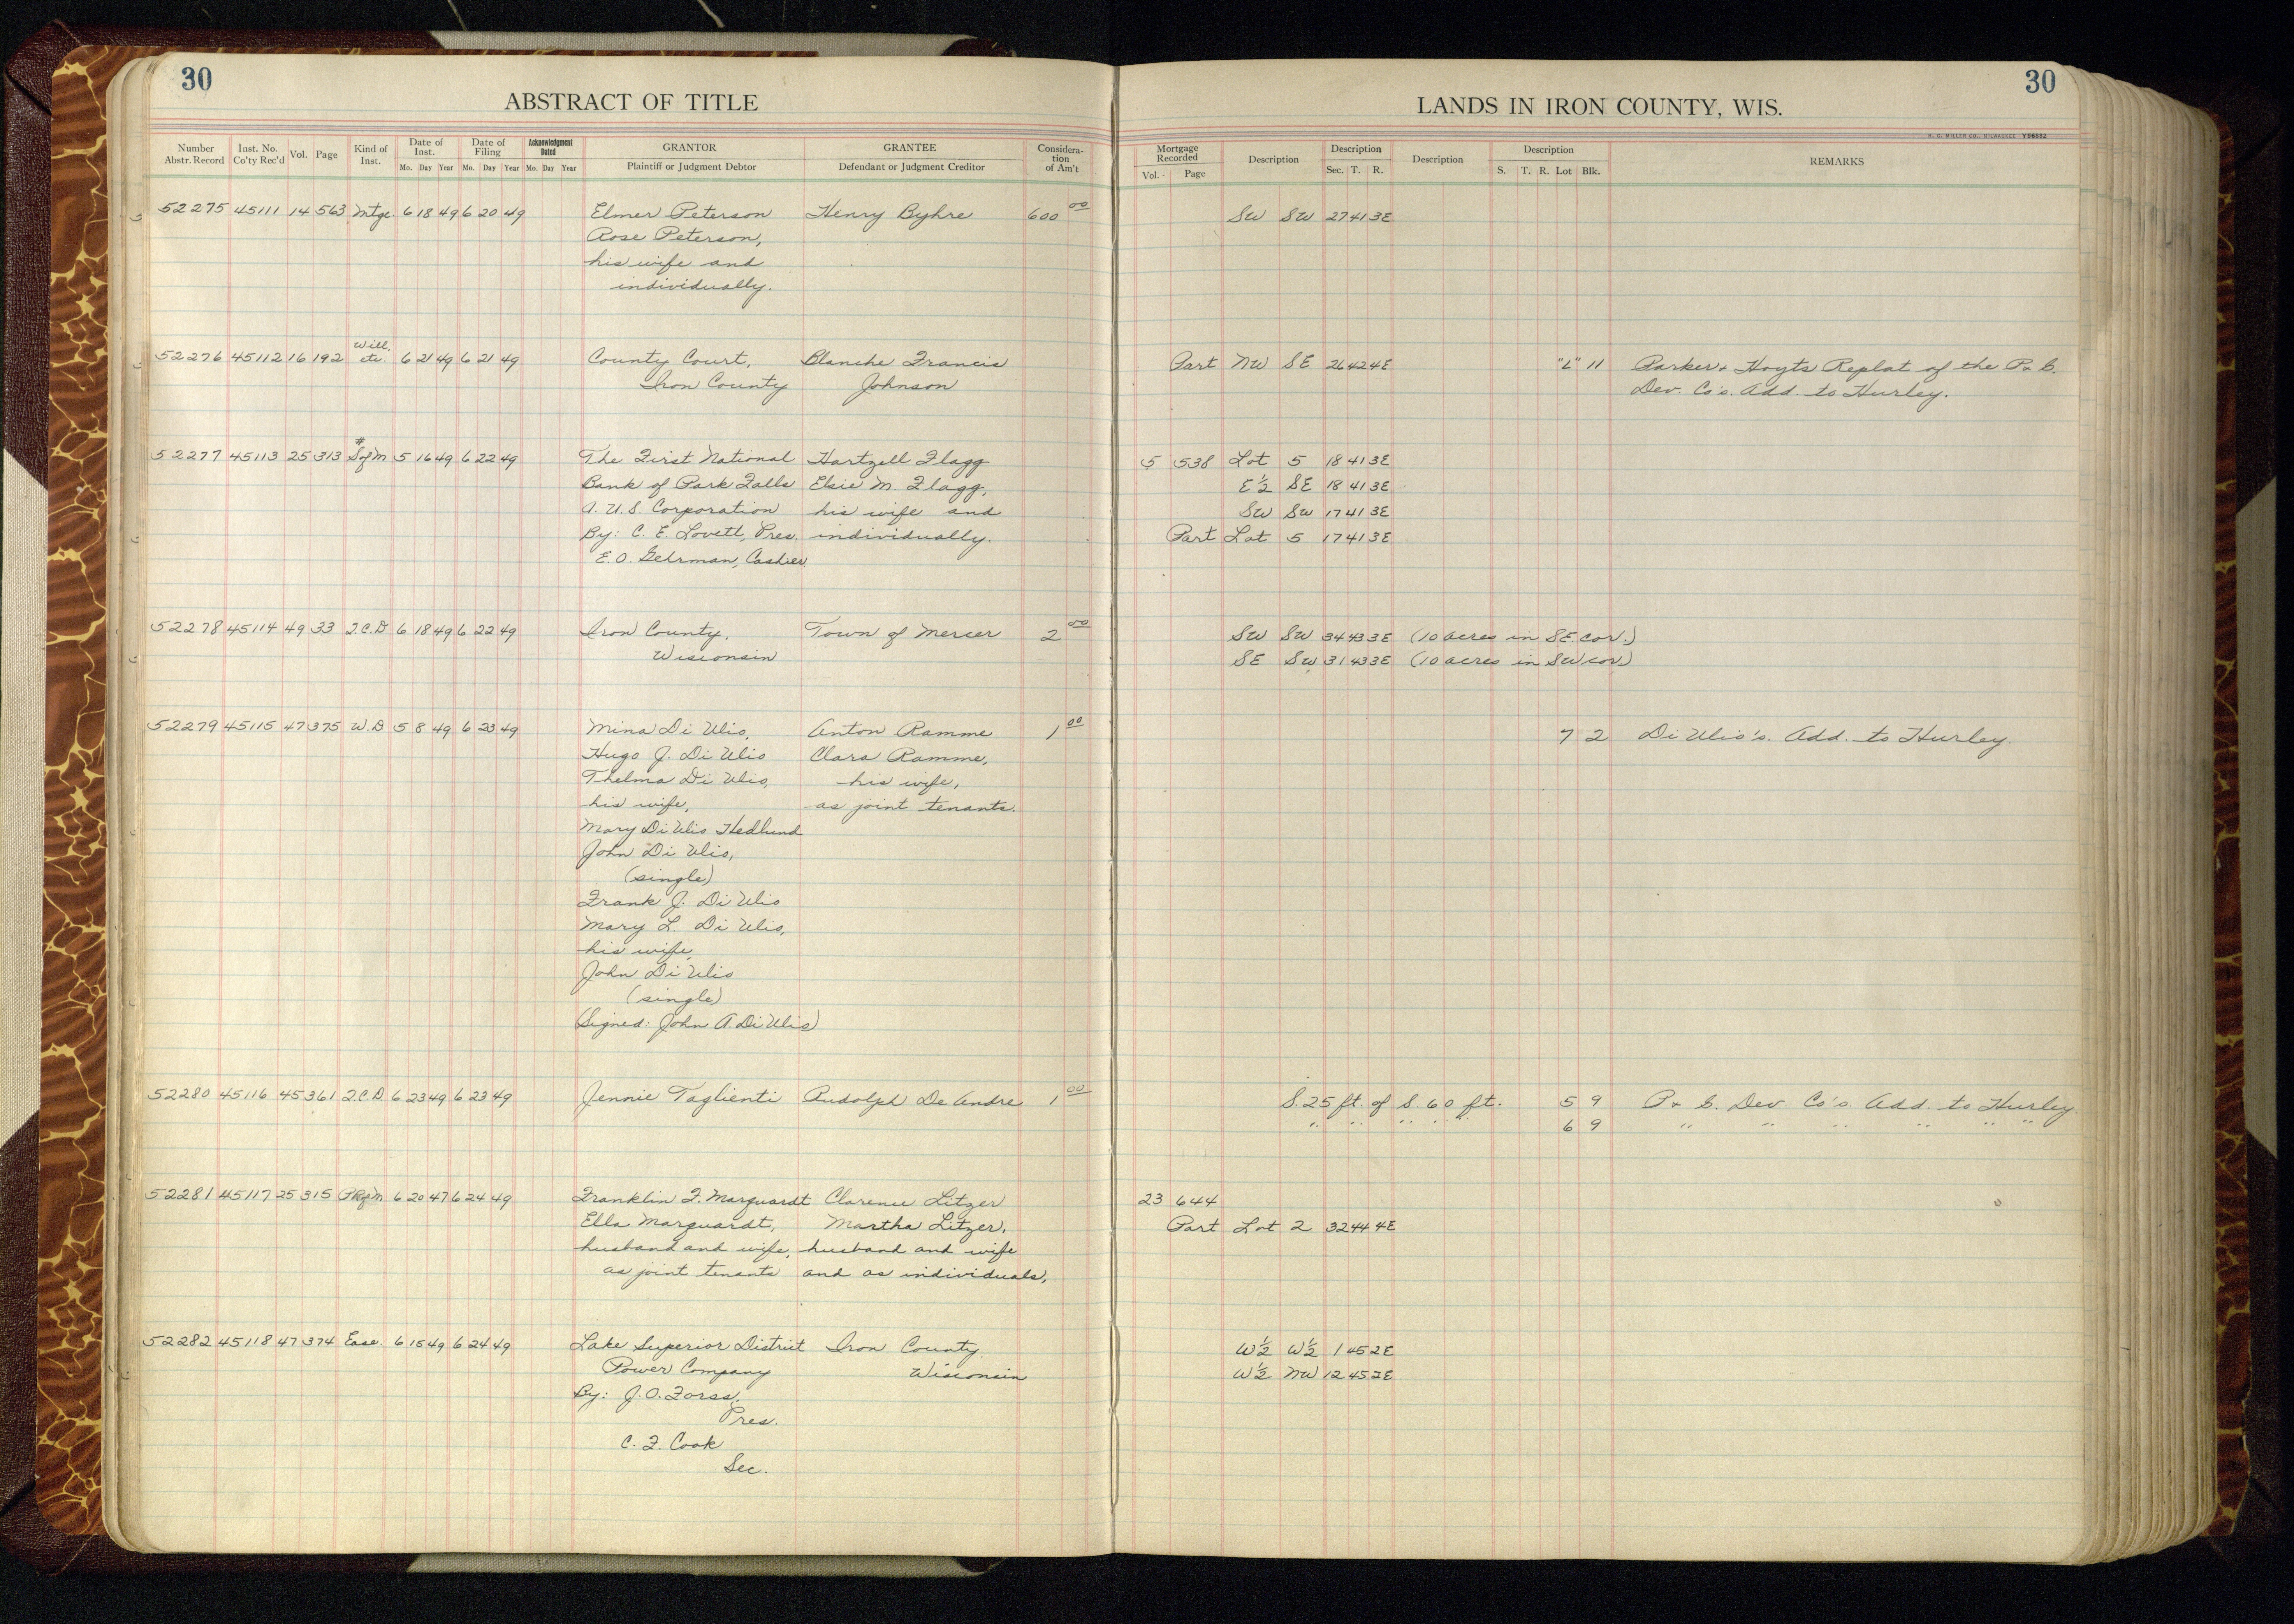 30
30
ABSTRACT OF TITLE
LANDS IN IRON COUNTY, WIS.
H. C. MILLER CO., MILWAUKEE
Number Abstr. Record Inst. No. Co'ty Rec'd Vol. Page Kind of Inst. Date of Inst. Mo. Day Year Date of Filing Mo. Day Year Acknowledgment Dated Mo. Day Year GRANTOR Plaintiff or Judgment Debtor GRANTEE Defendant or Judgment Creditor Considera-tion of Am't
Mortgage Recorded Vol. Page Description Description Sec. T. R. Description Description S. T. R. Lot Blk. REMARKS
52275 45111 14 563 Mtge. 6 18 49 6 20 49 Elmer Peterson Henry Byhre 600 00 SW SW 27 41 3E
Rose Peterson,
his wife and
individually.
52276 45112 16 192 Will, etc. 6 21 49 6 21 49 County Court, Blanche Francis Part NW SE 26 42 4E "L" 11 Parker & Hoyts Replat of the P. & B.
Iron County Johnson Dev. Co's. Add. to Hurley.
52277 45113 25 313 S of M 5 16 49 6 22 49 The First National Hartzell Flagg 5 538 Lot 5 18 41 3E
Bank of Park Falls Elsie M. Flagg, E½ SE 18 41 3E
A. U.S. Corporation his wife and SW SW 17 41 3E
By: C. E. Lovett, Pres. individually. Part Lot 5 17 41 3E
E. O. Gehrman, Cashier
52278 45114 49 33 Q.C.D 6 18 49 6 22 49 Iron County, Town of Mercer 2 00 SW SW 34 43 3E (10 acres in SE cor.)
Wisconsin SE SW 31 43 3E (10 acres in SW cor)
52279 45115 47 375 W.D 5 8 49 6 23 49 Mina Di Ulio, Anton Ramme 1 00 7 2 Di Ulio's. Add. to Hurley.
Hugo J. Di Ulio Clara Ramme,
Thelma Di Ulio, his wife,
his wife, as joint tenants.
Mary Di Ulio Hedlund
John Di Ulio,
(single)
Frank J. Di Ulio
Mary L. Di Ulio,
his wife,
John Di Ulio
(single)
(Signed: John A. Di Ulio)
52280 45116 45 361 Q.C.D. 6 23 49 6 23 49 Jennie Taglienti Rudolph De Andre 1 00 S. 25 ft. of S. 60 ft. 5 9 P. & B. Dev. Co's. Add. to Hurley.
" " " " " 6 9 " " " " " "
52281 45117 25 315 PRofM 6 20 47 6 24 49 Franklin F. Marquardt Clarence Litzer 23 644
Ella Marquardt, Martha Litzer, Part Lot 2 32 44 4E
husband and wife, husband and wife
as joint tenants and as individuals,
52282 45118 47 374 Ease. 6 15 49 6 24 49 Lake Superior District Iron County, W½ W½ 1 45 2E
Power Company Wisconsin W½ NW 12 45 2E
By: J. O. Forss,
Pres.
C. F. Cook
Sec.